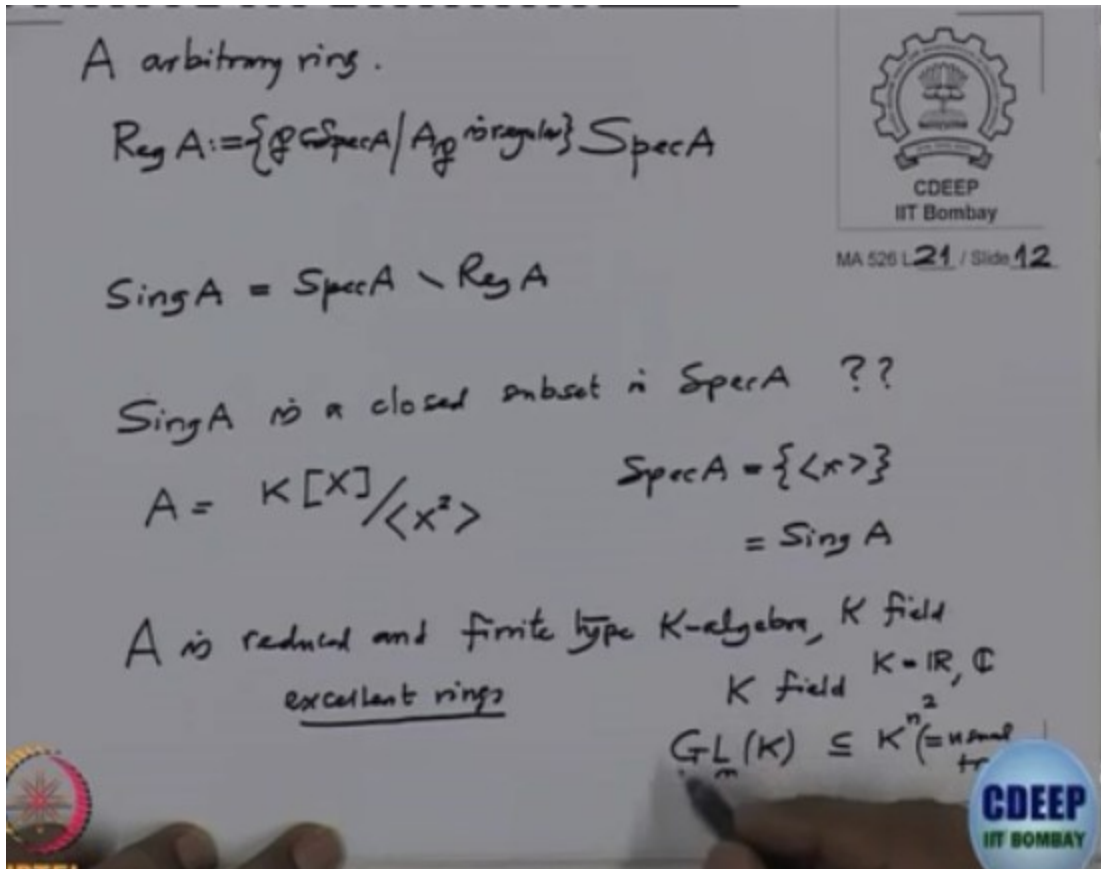 A arbitrary ring.
Reg A := {𝔭 ∈ Spec A / A𝔭 is regular} Spec A
CDEEP
IIT Bombay
MA 526 L 21 / Slide 12
Sing A = Spec A \ Reg A
Sing A is a closed subset in Spec A ??
A = K[X]/<x²>
Spec A = {<x>}
= Sing A
A is reduced and finite type K-algebra, K field
excellent rings
K field K = ℝ, ℂ
GLₙ(K) ⊆ K^n² (= usual
CDEEP
IIT BOMBAY